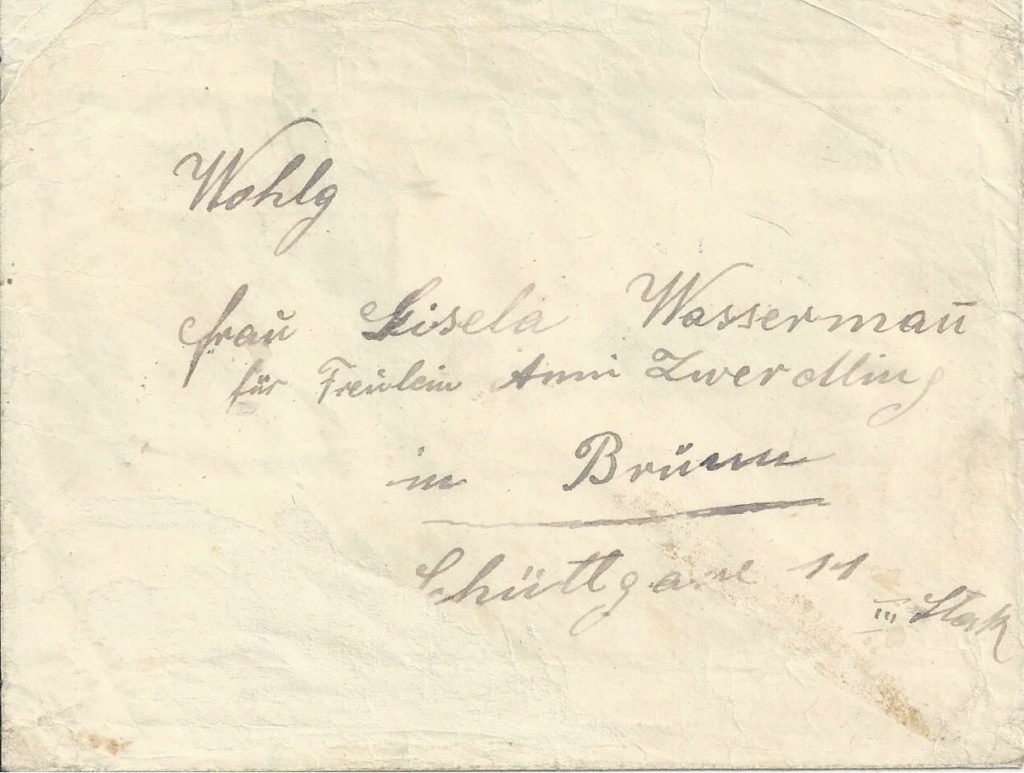 Wohlg
Frau Gisela Wassermañ
für Freulein Anni Zwerdling
in Brünn
Schüttgasse 11
III Stok